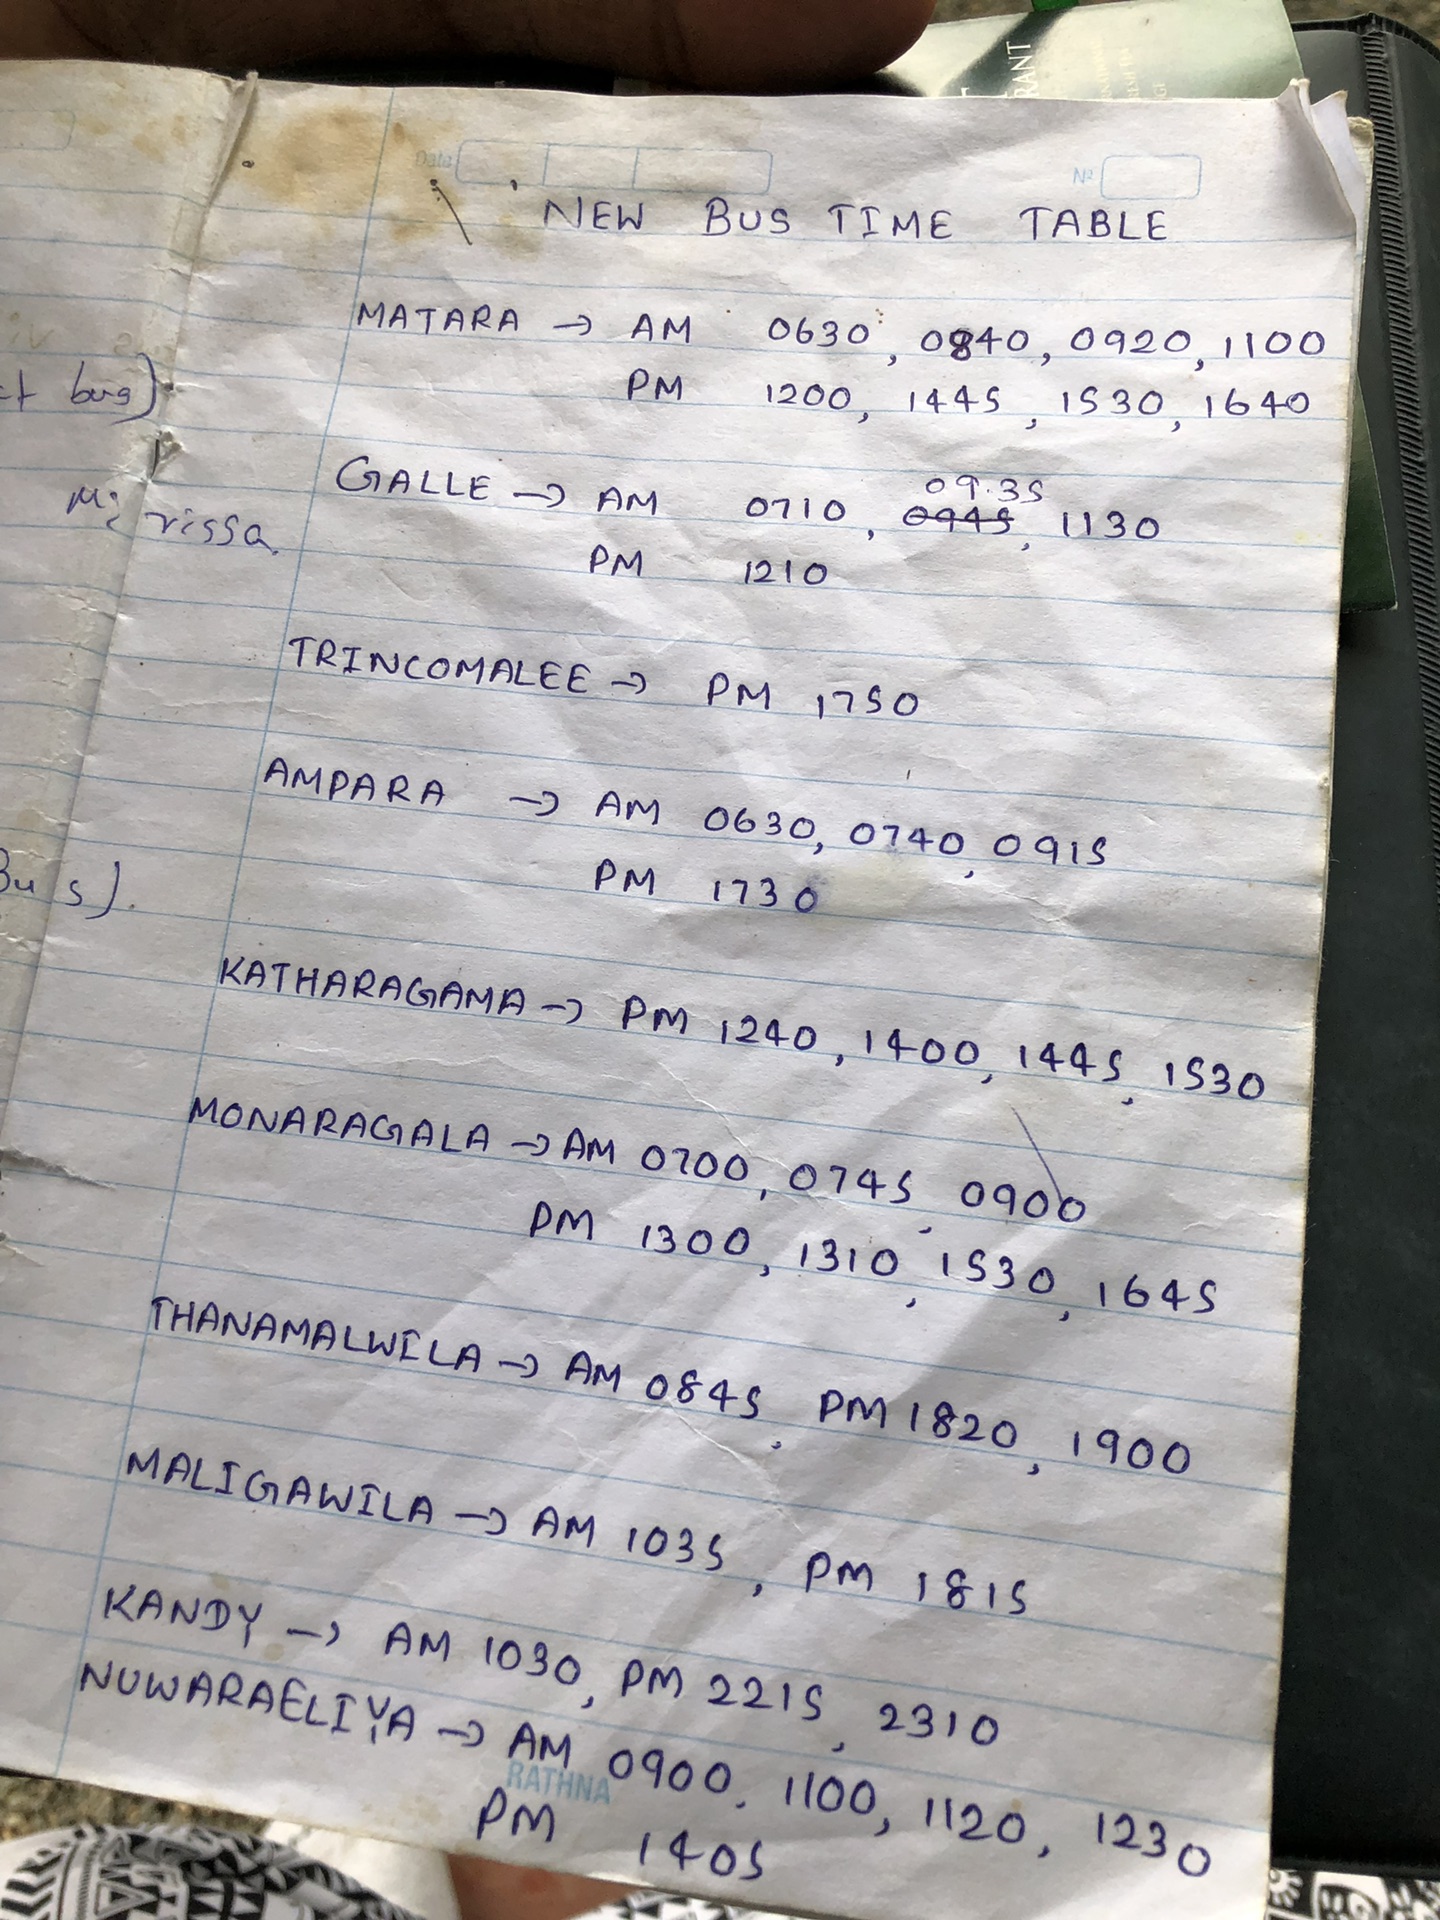 RANT
Date
Nº
NEW BUS TIME TABLE
MATARA → AM 0630, 0840, 0920, 1100
PM 1200, 1445, 1530, 1640
bus)
Mirissa
09.35
GALLE → AM 0710, 0945, 1130
PM 1210
TRINCOMALEE → PM 1750
AMPARA → AM 0630, 0740, 0915
PM 1730
Bus).
KATHARAGAMA → PM 1240, 1400, 1445, 1530
MONARAGALA → AM 0700, 0745, 0900
PM 1300, 1310, 1530, 1645
THANAMALWILA → AM 0845, PM 1820, 1900
MALIGAWILA → AM 1035, PM 1815
KANDY → AM 1030, PM 2215, 2310
NUWARAELIYA → AM 0900, 1100, 1120, 1230
RATHNA
PM 1405